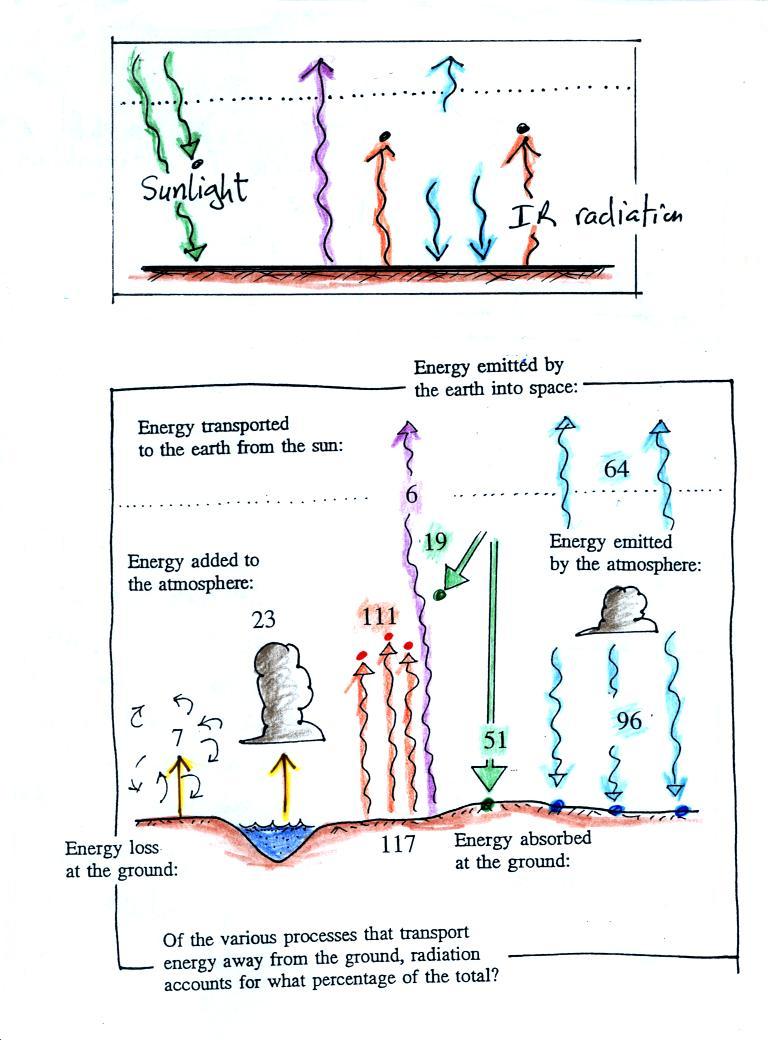 Sunlight
IR radiation
Energy emitted by
the earth into space:
Energy transported
to the earth from the sun:
64
6
19
Energy added to
the atmosphere:
Energy emitted
by the atmosphere:
23
111
7
51
96
117
Energy loss
at the ground:
Energy absorbed
at the ground:
Of the various processes that transport
energy away from the ground, radiation
accounts for what percentage of the total?